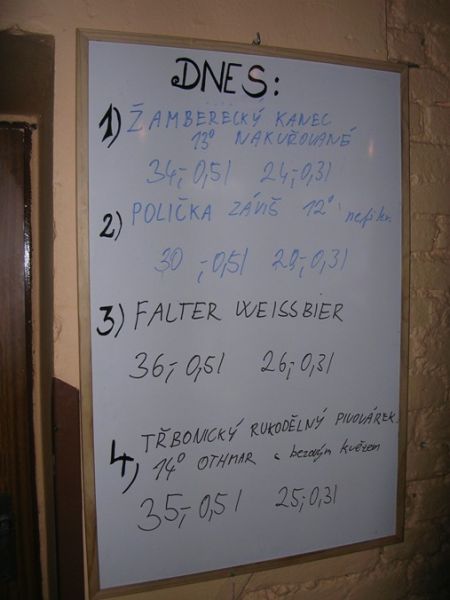 DNES:
1) ŽAMBERECKÝ KANEC
13° NAKUŘOVANÉ
34,- 0,5l 24,- 0,3l
2) POLIČKA ZÁVIŠ 12° nefiltr.
30,- 0,5l 20,- 0,3l
3) FALTER WEISSBIER
36,- 0,5l 26,- 0,3l
4) TŘBONICKÝ RUKODĚLNÝ PIVOVÁREK
14° OTHMAR s bezovým květem
35,- 0,5l 25,- 0,3l